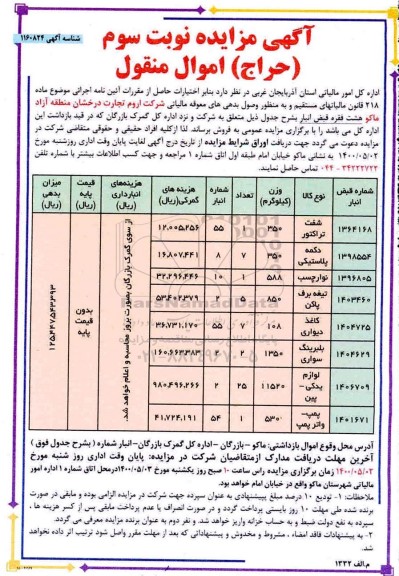 شناسه آگهی ۱۱۶۰۸۲۴
آگهی مزایده نوبت سوم
(حراج) اموال منقول
اداره کل امور مالیاتی استان آذربایجان غربی در نظر دارد بنابر اختیارات حاصل از مقررات آئین نامه اجرائی موضوع ماده
۲۱۸ قانون مالیاتهای مستقیم و به منظور وصول بدهی های معوقه مالیاتی شرکت اروم تجارت درخشان منطقه آزاد
ماکو هشت فقره قبض انبار بشرح جدول ذیل متعلق به شرکت و نزد اداره کل گمرک بازرگان که در قید بازداشت این
اداره کل می باشد را با برگزاری مزایده عمومی به فروش برساند. لذا ازکلیه افراد حقیقی و حقوقی متقاضی شرکت در
مزایده دعوت می گردد جهت دریافت اوراق شرایط مزایده از تاریخ درج آگهی لغایت پایان وقت اداری روزشنبه مورخ
۱۴۰۰/۰۵/۰۲ به نشانی ماکو خیابان امام طبقه اول اتاق شماره ۱ مراجعه و جهت کسب اطلاعات بیشتر با شماره تلفن
۳۴۲۲۲۷۲۲ - ۰۴۴ تماس حاصل نمایند.
شماره قبض انبار نوع کالا وزن (کیلوگرم) تعداد شماره انبار هزینه های گمرکی(ریال) هزینه‌های انبارداری (ریال) قیمت پایه (ریال) میزان بدهی (ریال)
۱۳۶۴۱۶۸ شفت تراکتور ۳۵۰ ۱ ۵۵ ۱۲.۰۰۵.۲۵۶
۱۳۹۸۵۵۴ دکمه پلاستیکی ۳۵۰ ۷ ۸ ۱۶.۸۰۷.۴۴۱
۱۳۹۶۸۰۵ نوارچسب ۵۸۸ ۱ ۱۰ ۳۲.۲۹۶.۴۴۶
۱۴۰۳۴۶۰ تیغه برف پاکن ۸۵۰ ۵ ۲ ۵۳.۴۰۲.۳۷۹
۱۴۰۴۷۲۵ کاغذ دیواری ۱۰۸ ۷ ۵۵ ۳۶.۷۳۱.۱۷۰
۱۴۰۴۶۲۹ بلبرینگ سواری ۱۳۵۰ ۲ ۲ ۱۶۰.۶۶۳.۳۸۳
۱۴۰۶۷۰۹ لوازم یدکی - پین ۱۱۵۲۰ ۲۵ ۲ ۹۸۰.۴۹۶.۲۶۶
۱۴۰۱۶۷۱ پمپ- واتر پمپ ۵۳۰ ۱ ۵۴ ۴۱.۷۲۴.۱۹۱
از سوی گمرک بازرگان بصورت بروز محاسبه و اعلام خواهد شد.
بدون قیمت پایه
ParsNamadData
آدرس محل وقوع اموال بازداشتی: ماکو - بازرگان - اداره کل گمرک بازرگان- انبار شماره ( بشرح جدول فوق )
آخرین مهلت دریافت مدارک ازمتقاضیان شرکت در مزایده: پایان وقت اداری روز شنبه مورخ
۱۴۰۰/۰۵/۰۲ زمان برگزاری مزایده راس ساعت ۱۰ صبح روز یکشنبه مورخ ۱۴۰۰/۰۵/۰۳درمحل اتاق شماره ۱ اداره امور
مالیاتی شهرستان ماکو واقع در خیابان امام خواهد بود.
ملاحظات: ۱- تودیع ۱۰ درصد مبلغ پیشنهادی به عنوان سپرده جهت شرکت در مزایده الزامی بوده و مابقی در صورت
برنده شدن طی مهلت ۱۰ روز بایستی پرداخت گردد و در صورت انصراف یا عدم پرداخت مابقی پس از کسر هزینه ها ،
سپرده به نفع دولت ضبط و به حساب خزانه واریز خواهد شد. و نفر دوم به عنوان برنده مزایده معرفی می گردد.
۲- به پیشنهادات فاقد امضاء ، مشروط و مخدوش و پیشنهاداتی که بعد از مهلت مقرر واصل شود ترتیب اثر داده نخواهد
شد.
م.الف ۱۳۳۲